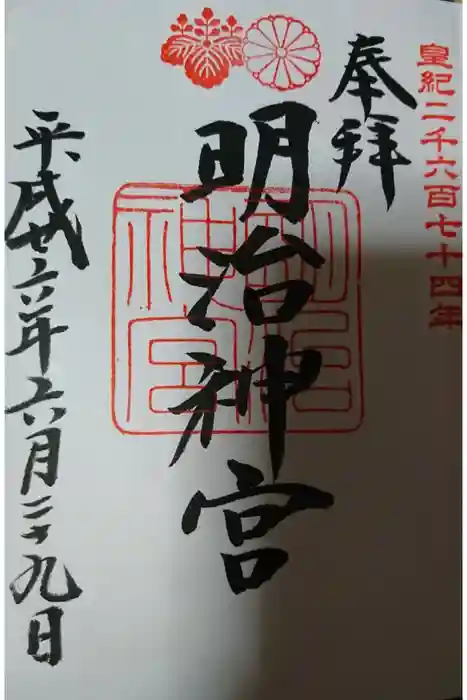 皇紀二千六百七十四年
奉拝
明治神宮
明治神宮
平成廿六年六月二十九日